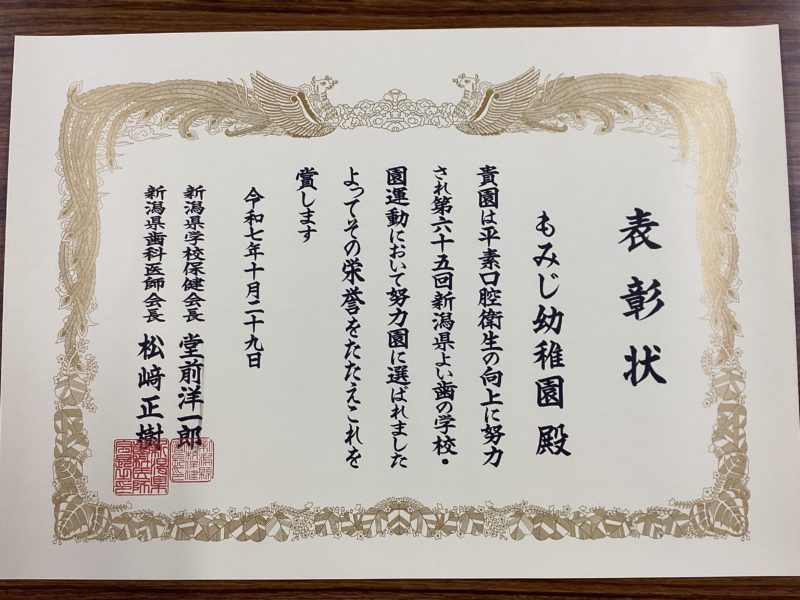 表彰状
もみじ幼稚園 殿
貴園は平素口腔衛生の向上に努力
され第六十五回新潟県よい歯の学校・
園運動において努力園に選ばれました
よってその栄誉をたたえこれを
賞します
令和七年十月二十九日
新潟県学校保健会長 堂前洋一郎
新潟県歯科医師会長 松﨑正樹